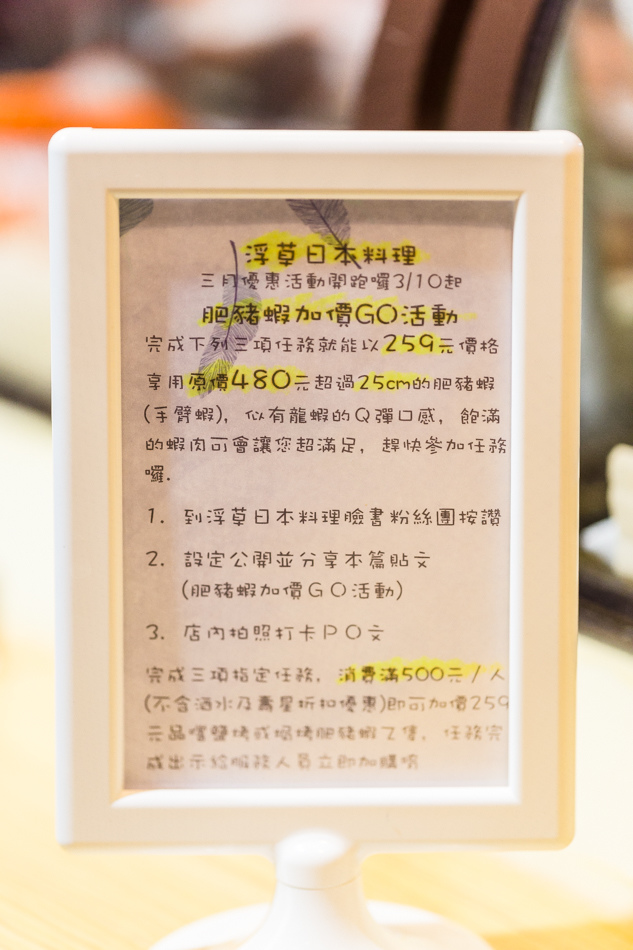 浮草日本料理
三月優惠活動開跑囉3/10起
肥豬蝦加價GO活動
完成下列三項任務就能以259元價格
享用原價480元超過25cm的肥豬蝦
(手臂蝦)，似有龍蝦的Q彈口感，飽滿
的蝦肉可會讓您超滿足，趕快參加任務
囉.
1. 到浮草日本料理臉書粉絲團按讚
2. 設定公開並分享本篇貼文
(肥豬蝦加價GO活動)
3. 店內拍照打卡PO文
完成三項指定任務，消費滿500元/人
(不含酒水及壽星折扣優惠)即可加價259
元品嚐鹽烤或焗烤肥豬蝦乙隻，任務完
成出示給服務人員立即加購唷